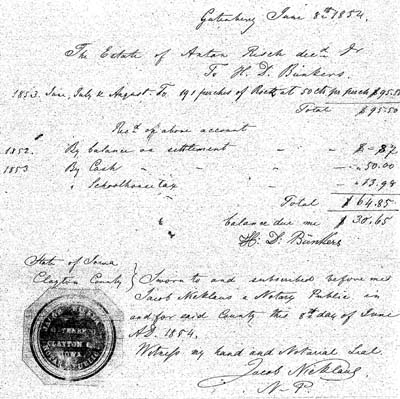 Gutenberg June 8th 1854.
The Estate of Anton Resch decd. Dr
To H. D. Bünkers.
1853. June, July & August. To 191 perches of Rock at 50 cts per perch $95.50
Total $95.50
Recd. of above account
1852. By balance on settlement " " $ - 87
1853 By Cash " " " 50.00
" Schoolhouse tax " 13.98
Total $ 64.85
" balance due me $ 30.65
H. D. Bünkers
State of Iowa
Clayton County } Sworn to and subscribed before me
Jacob Nicklaus a Notary Public in
and for said County this 8th day of June
A.D. 1854.
Witness my hand and Notarial Seal.
Jacob Nicklaus
N. P.
CLAYTON C.
IOWA